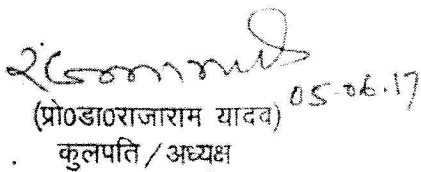 05.06.17
(प्रो0डा0राजाराम यादव)
कुलपति / अध्यक्ष